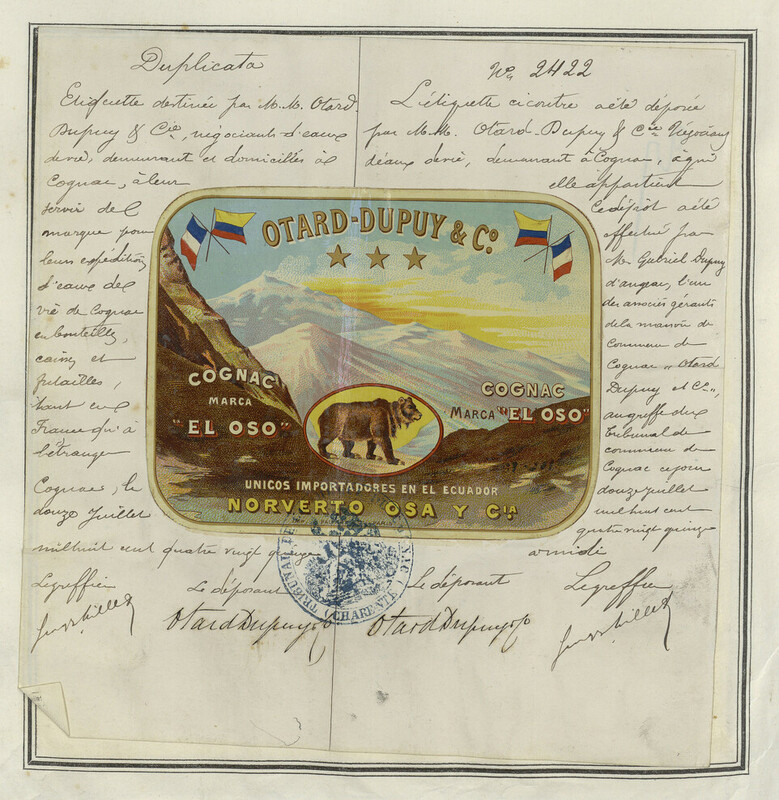 Duplicata
Etiquette destinée par M.M. Otard-
Dupuy & Cie, négociants d'eaux
de vie, demeurant et domiciliés à
Cognac, à leur
servir de
marque pour
leurs expéditions
d'eaux de
vie de Cognac
en bouteilles,
caisses et
futailles,
tant en
France qu'à
l'étranger
Cognac, le
douze Juillet
mil huit cent quatre vingt quinze
Le greffier
Le déposant
Otard Dupuy & Co
No 2422
L'étiquette ci contre a été déposée
par M.M. Otard-Dupuy & Cie Négociants
d'eaux de vie, demeurant à Cognac, à qui
elle appartient
Ce dépôt a été
effectué par
Mr Gabriel Dupuy
d'angeac, l'un
des associés gérants
de la maison de
Commerce de
Cognac "Otard
Dupuy et Cie",
au greffe du
tribunal de
commerce de
Cognac ce jour
douze Juillet
mil huit cent
quatre vingt quinze
à midi
Le déposant
Le greffier
Otard Dupuy & Co
OTARD-DUPUY & Co.
COGNAC
MARCA
"EL OSO"
COGNAC
MARCA "EL OSO"
UNICOS IMPORTADORES EN EL ECUADOR
NORVERTO OSA Y CIA
TRIBUNAL
(CHARENTE)